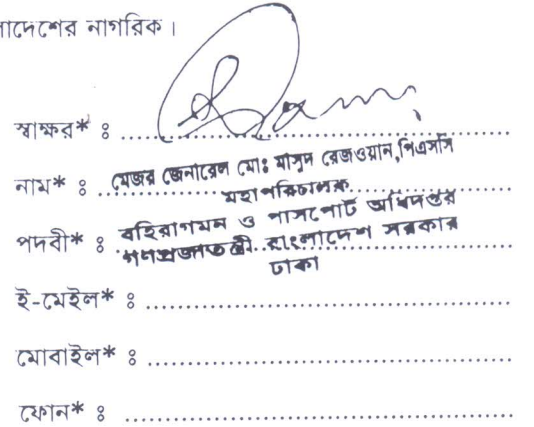 লাদেশের নাগরিক।
স্বাক্ষর* ঃ
নাম* ঃ মেজর জেনারেল মোঃ মাসুদ রেজওয়ান,পিএসসি
মহাপরিচালক
পদবী* ঃ বহিরাগমন ও পাসপোর্ট অধিদপ্তর
গণপ্রজাতন্ত্রী বাংলাদেশ সরকার
ঢাকা
ই-মেইল* ঃ
মোবাইল* ঃ
ফোন* ঃ